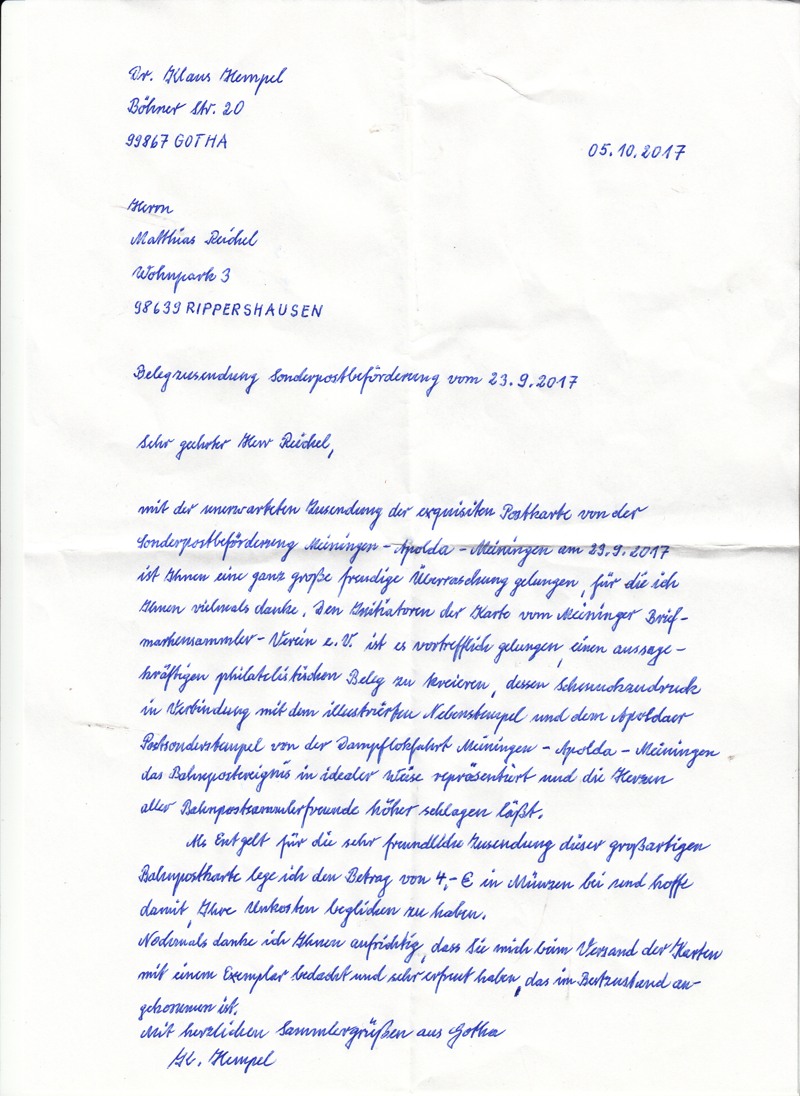 Dr. Klaus Hempel
Böhner Str. 20
99867 GOTHA
05.10.2017
Herrn
Matthias Reichel
Wohnpark 3
98639 RIPPERSHAUSEN
Belegzusendung Sonderpostbeförderung vom 23.9.2017
Sehr geehrter Herr Reichel,
mit der unerwarteten Zusendung der exquisiten Postkarte von der
Sonderpostbeförderung Meiningen - Apolda - Meiningen am 23.9.2017
ist Ihnen eine ganz große freudige Überraschung gelungen, für die ich
Ihnen vielmals danke. Den Initiatoren der Karte vom Meininger Brief-
markensammler - Verein e.V. ist es vortrefflich gelungen, einen aussage-
kräftigen philatelistischen Beleg zu kreieren, dessen Schmuckzudruck
in Verbindung mit dem illustrierten Nebenstempel und dem Apoldaer
Postsonderstempel von der Dampflokfahrt Meiningen - Apolda - Meiningen
das Bahnpostereignis in idealer Weise repräsentiert und die Herzen
aller Bahnpostsammlerfreunde höher schlagen läßt.
Als Entgelt für die sehr freundliche Zusendung dieser großartigen
Bahnpostkarte lege ich den Betrag von 4,- € in Münzen bei und hoffe
damit, Ihre Unkosten beglichen zu haben.
Nochmals danke ich Ihnen aufrichtig, dass Sie mich beim Versand der Karten
mit einem Exemplar bedacht und sehr erfreut haben, das im Bestzustand an-
gekommen ist.
Mit herzlichen Sammlergrüßen aus Gotha
Kl. Hempel